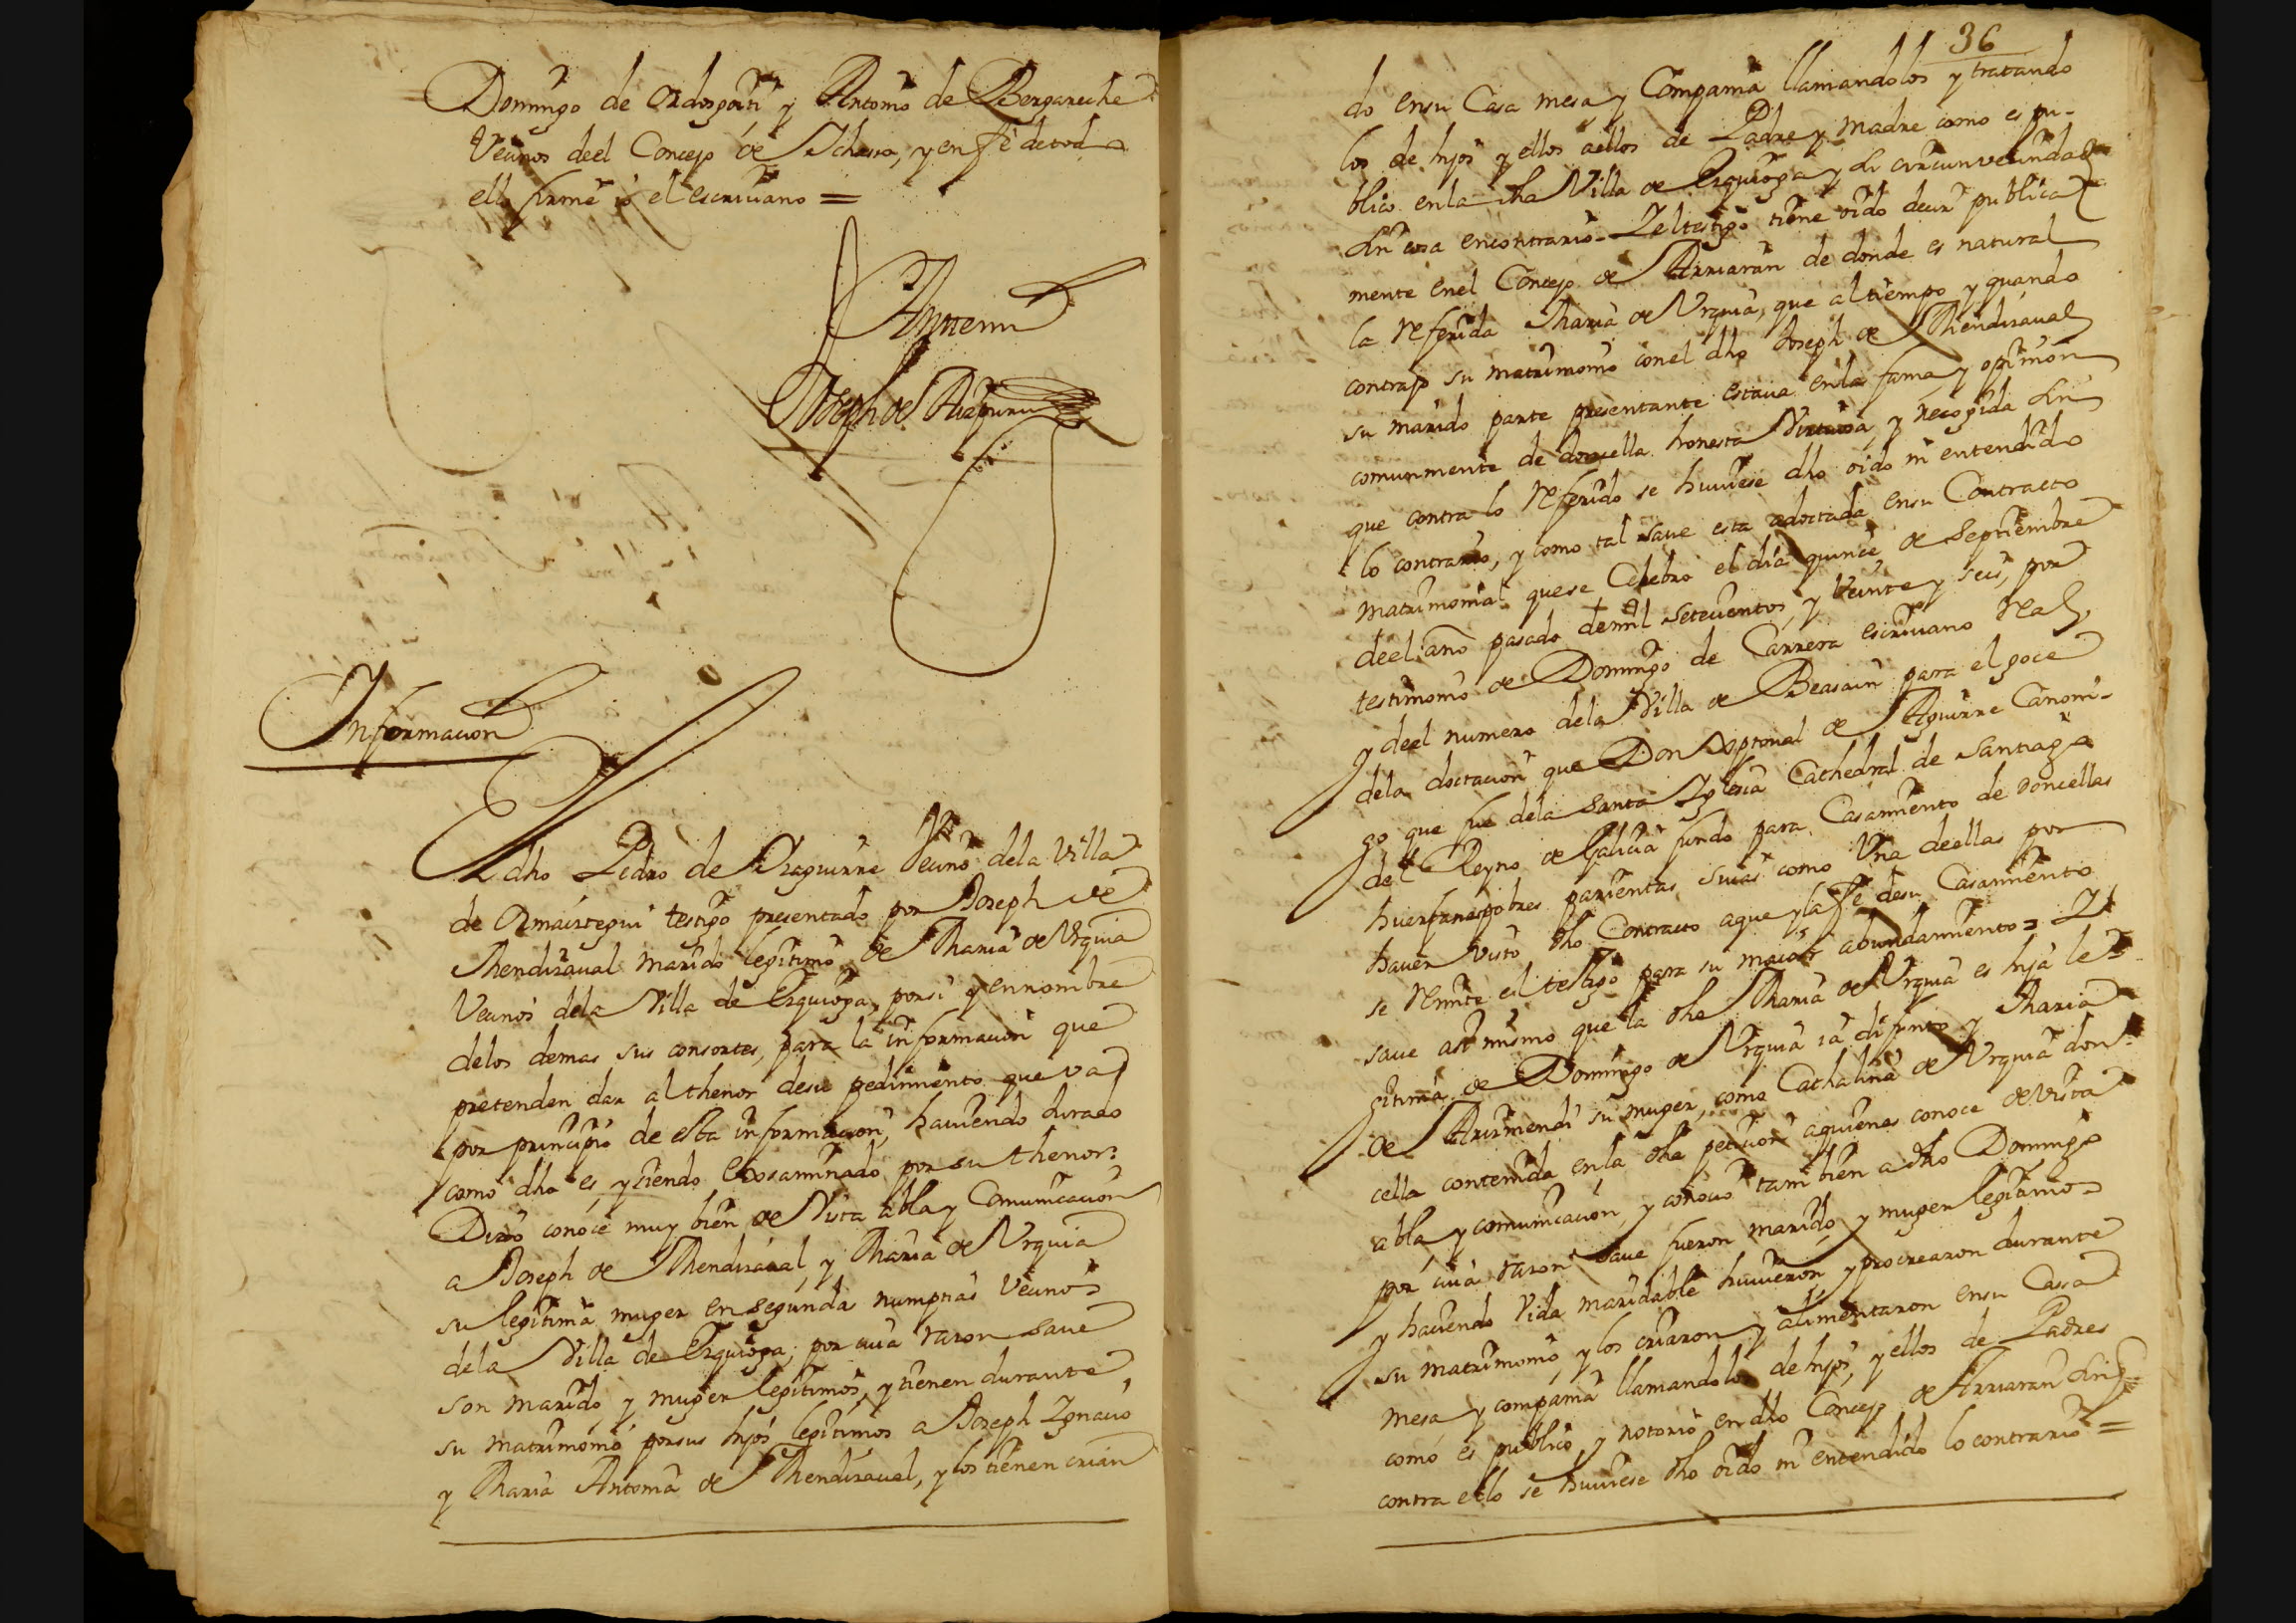 Domingo de Ordozgoiti y Antonio de Bergareche
Vecinos deel Concejo de Ichasso, y en fe de todo
ello firme io el escriuano =
Ante mi
Joseph de Aizpuru
Informacion
El dho Pedro de Izaguirre Vecino dela Villa
de Ormaiztegui testigo presentado por Joseph de
Mendizaual marido legitimo de Maria de Vrquia
Vecinos dela Villa de Ezquioga, por si y en nombre
delos demas sus consortes, para la informacion que
pretenden dar al thenor desu pedimiento que va
por principio de esta informacion, hauiendo Jurado
como dho es, y siendo Exsaminado por su thenor:
Dixo conoce muy bien de Vista abla y Comunicacion
a Joseph de Mendizaual, y Maria de Vrquia
su legitima muger en segunda numpcias Vecinos
dela Villa de Ezquioga; por cuia razon saue
son marido y muger legitimos, y tienen durante
su matrimonio por sus hijos legitimos a Joseph Ignacio
y Maria Antonia de Mendizaual, y los tienen crian
36
do ensu Casa mesa y Compania llamandolos y tratando
los de hijos y ellos aellos de Padre y madre como es pu-
blico enla dha Villa de Ezquioga y su circunvecindad
sin cosa encontrario = Y el testigo tiene oido decir publica
mente enel Concejo de Arriaran de donde es natural
la referida Maria de Vrquia, que al tiempo y quando
contrajo su matrimonio conel dho Joseph de Mendizaual
su marido parte presentante estaua enla fama y opinion
comunmente de doncella honesta Virtuosa, y recogida sin
que contra lo referido se huuiese dho oido ni entendido
lo contrario, y como tal saue esta adoctada ensu Contracto
matrimonial que se Celebro el dia quince de Septiembre
deel año pasado de mil setecientos y Veinte y seis, por
testimonio de Domingo de Carrera escriuano Real,
y deel numero dela Villa de Beasain para el goce
dela doctacion que Don Xptoual de Aguirre Canoni-
go que fue dela Santa Yglesia Cathedral de Santiago
del Reyno de Galicia fundo para Casamiento de doncellas
huerfanas pobres parientas suias como Vna deellas por
hauer Visto dho Contracto aque y la fe desu Casamiento
se remite el testigo para su maior abundamiento = Y
saue asi mismo que la dha Maria de Vrquia es hija le-
gitima de Domingo de Vrquia ia difunto y Maria
de Arizmendi su muger, como Cathalina de Vrquia don-
cella contenida enla dha peticion aquienes conoce de Vista
abla y comunicacion, y conocio tambien a dho Domingo
por cuia razon saue fueron marido y muger legitimos
y hauiendo Vida maridable huuieron y procrearon durante
su matrimonio, y los criaron y alimentaron ensu Casa
mesa y compania llamandolos de hijos, y ellos de Padres
como es publico y notorio en dho Concejo de Arriaran sin q
contra ello se huuiese dho oido ni entendido lo contrario =